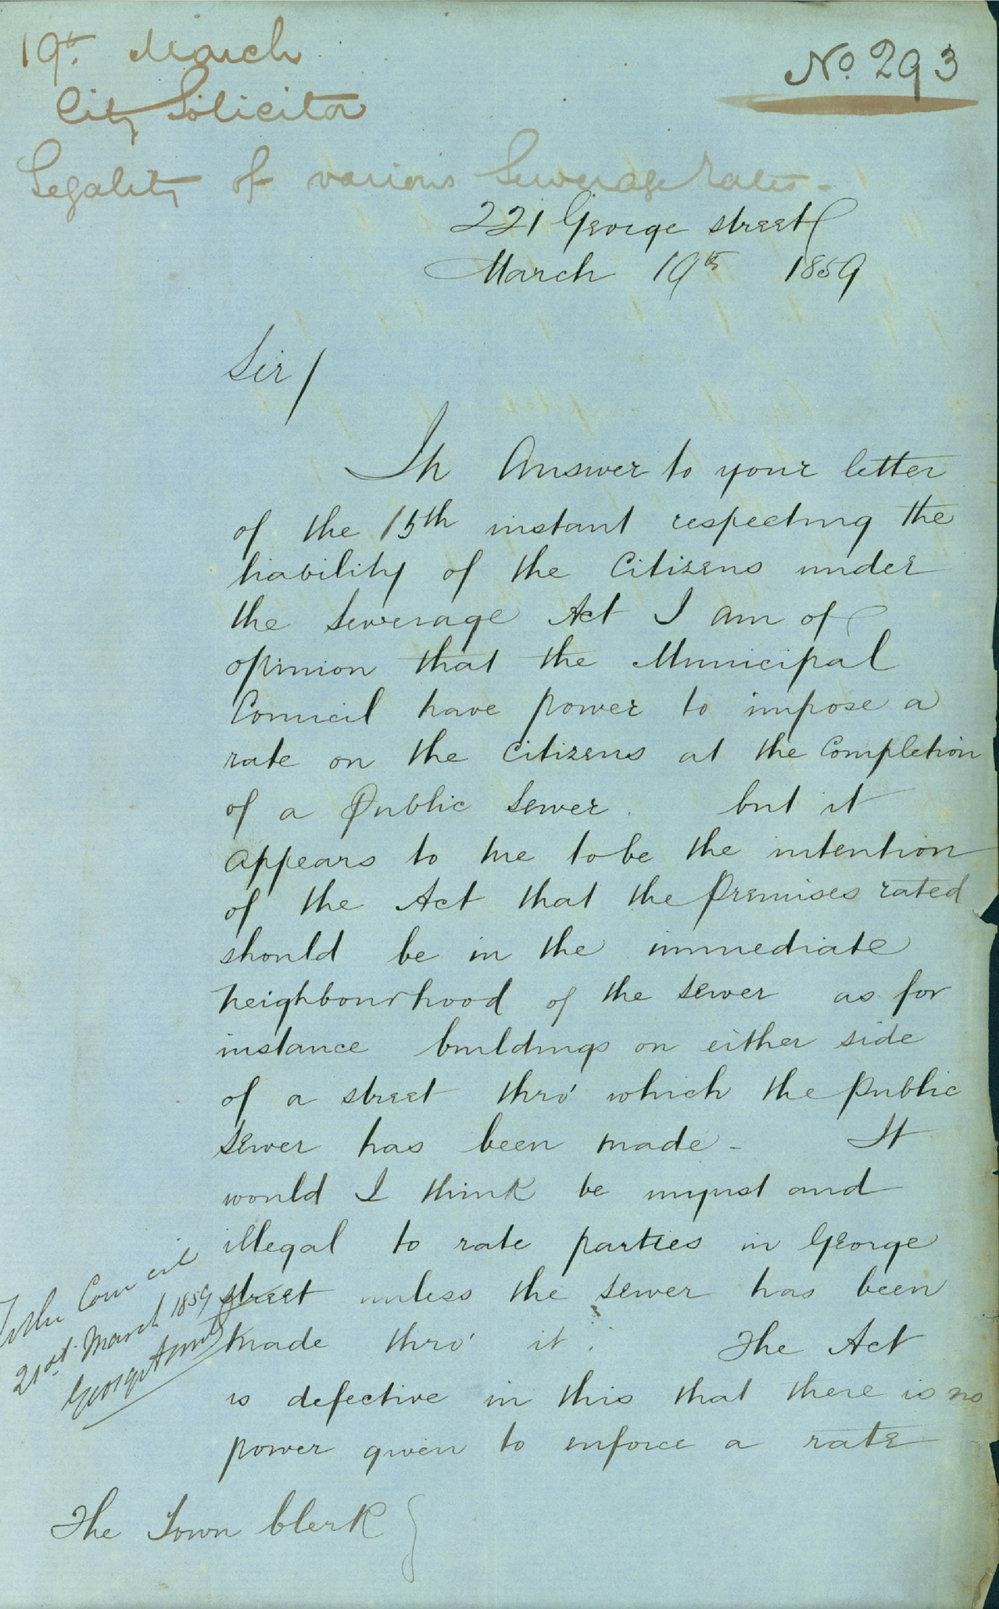 19th March
City Solicitor
Legality of various Sewerage Rates -
No. 293
221 George street
March 19th 1859
Sir/
In Answer to your letter
of the 15th instant respecting the
liability of the Citizens under
the Sewerage Act I am of
opinion that the Municipal
Council have power to impose a
rate on the Citizens at the Completion
of a Public Sewer. but it
appears to me to be the intention
of the Act that the Premises rated
should be in the immediate
neighbourhood of the Sewer as for
instance buildings on either side
of a street thro' which the public
Sewer has been made - It
would I think be unjust and
illegal to rate parties in George
street unless the Sewer has been
made thro' it. The Act
is defective in this that there is no
power given to inforce a rate
The Town Clerk
Council
21st March 1859